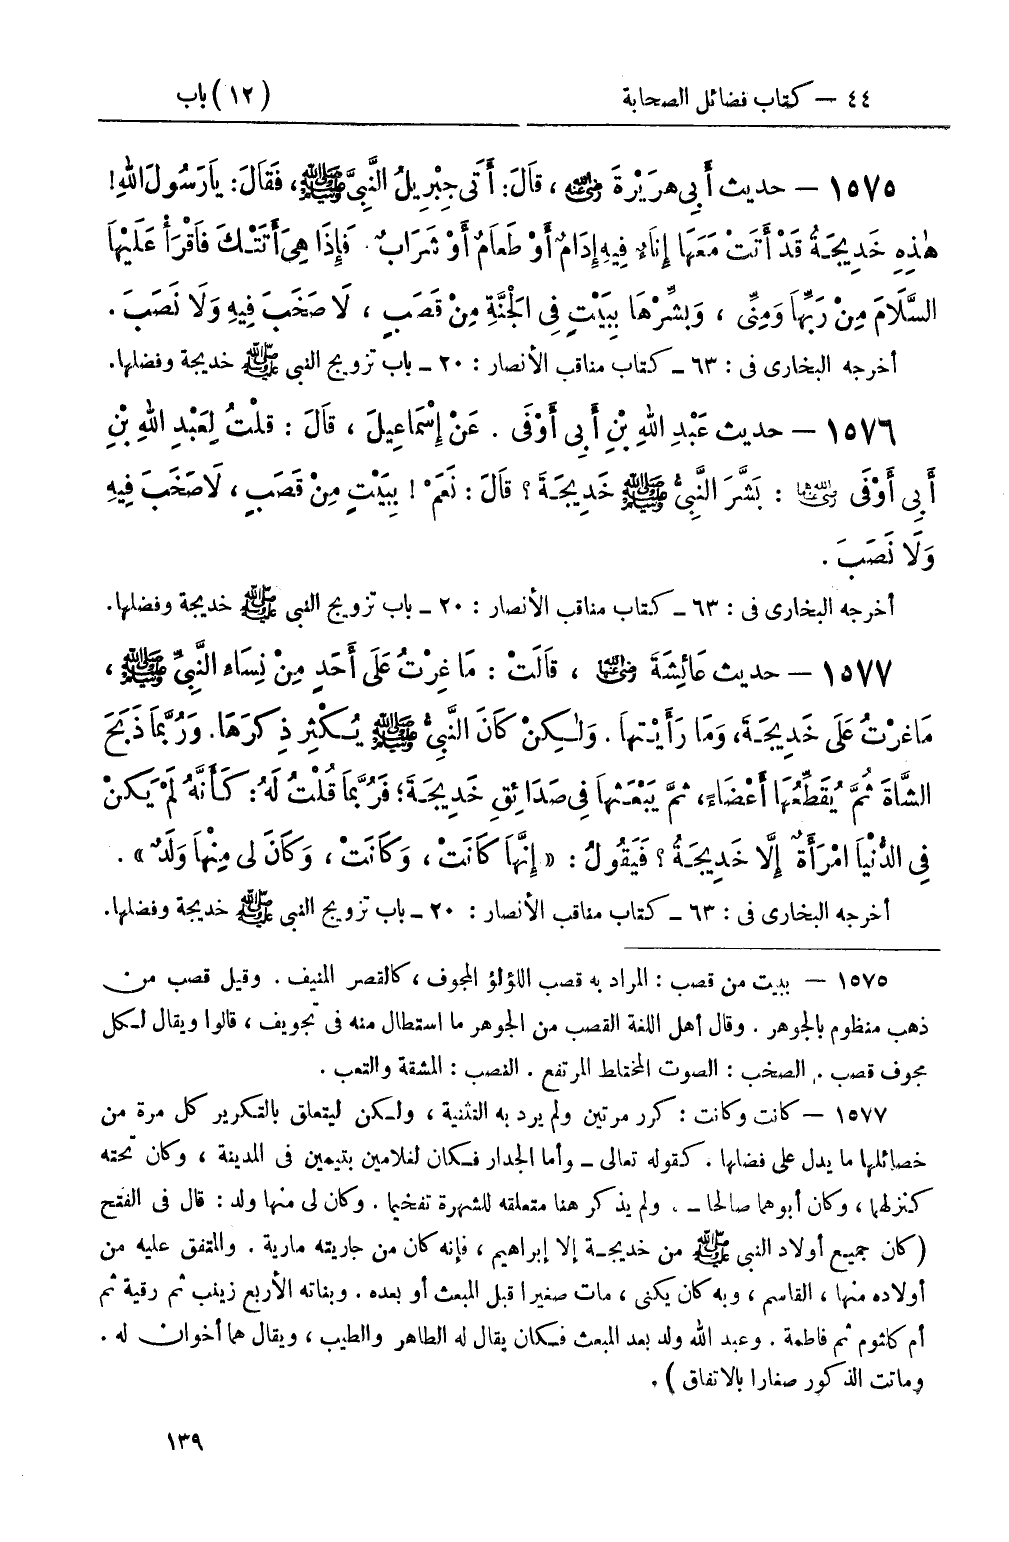 ٤٤ – كتاب فضائل الصحابة (١٢) باب
١٥٧٥ – حديث أَبِي هُرَيْرَةَ رضي الله عنه ، قَالَ: أَتَى جِبْرِيلُ النَّبِيَّ ﷺ، فَقَالَ: يَا رَسُولَ اللهِ!
هٰذِهِ خَدِيجَةُ قَدْ أَتَتْ مَعَهَا إِنَاءٌ فِيهِ إِدَامٌ أَوْ طَعَامٌ أَوْ شَرَابٌ. فَإِذَا هِيَ أَتَتْكَ فَاقْرَأْ عَلَيْهَا
السَّلَامَ مِنْ رَبِّهَا وَمِنِّى ، وَبَشِّرْهَا بِبَيْتٍ فِى الْجَنَّةِ مِنْ قَصَبٍ ، لَا صَخَبَ فِيهِ وَلَا نَصَبَ .
أخرجه البخارى فى : ٦٣ ـ كتاب مناقب الأنصار : ٢٠ ـ باب تزويج النبى ﷺ خديجة وفضلها.
١٥٧٦ – حديث عَبْدِ اللهِ بْنِ أَبِي أَوْفَى . عَنْ إِسْمَاعِيلَ ، قَالَ : قلْتُ لِعَبْدِ اللهِ بْنِ
أَبِي أَوْفَى رضي الله عنهما : بَشَّرَ النَّبِيُّ ﷺ خَدِيجَةَ ؟ قَالَ : نَعَمْ ! بِبَيْتٍ مِنْ قَصَبٍ ، لَا صَخَبَ فِيهِ
وَلَا نَصَبَ .
أخرجه البخارى فى : ٦٣ ـ كتاب مناقب الأنصار : ٢٠ ـ باب تزويج النبى ﷺ خديجة وفضلها.
١٥٧٧ – حديث عَائِشَةَ رضي الله عنها ، قَالَتْ : مَا غِرْتُ عَلَى أَحَدٍ مِنْ نِسَاءِ النَّبِيِّ ﷺ ،
مَا غِرْتُ عَلَى خَدِيجَةَ، وَمَا رَأَيْتُهَا . وَلٰكِنْ كَانَ النَّبِيُّ ﷺ يُكْثِرُ ذِكْرَهَا. وَرُبَّمَا ذَبَحَ
الشَّاةَ ثُمَّ يُقَطِّعُهَا أَعْضَاءً، ثُمَّ يَبْعَثُهَا فِى صَدَائِقِ خَدِيجَةَ؛ فَرُبَّمَا قُلْتُ لَهُ: كَأَنَّهُ لَمْ يَكُنْ
فِى الدُّنْيَا امْرَأَةٌ إِلَّا خَدِيجَةُ ؟ فَيَقُولُ : « إِنَّهَا كَانَتْ ، وَكَانَتْ ، وَكَانَ لِى مِنْهَا وَلَدٌ » .
أخرجه البخارى فى : ٦٣ ـ كتاب مناقب الأنصار : ٢٠ ـ باب تزويج النبى ﷺ خديجة وفضلها.
١٥٧٥ – ببيت من قصب : المراد به قصب اللؤلؤ المجوف ، كالقصر المنيف . وقيل قصب من
ذهب منظوم بالجوهر . وقال أهل اللغة القصب من الجوهر ما استطال منه فى تجويف ، قالوا ويقال لكل
مجوف قصب . الصخب : الصوت المختلط المرتفع . النصب : المشقة والتعب .
١٥٧٧ – كانت وكانت : كرر مرتين ولم يرد به التثنية ، ولكن ليتعلق بالتكرير كل مرة من
خصائلها ما يدل على فضلها . كقوله تعالى ـ وأما الجدار فكان لغلامين يتيمين فى المدينة ، وكان تحته
كنز لهما ، وكان أبوهما صالحا ـ . ولم يذكر هنا متعلقه للشهرة تفخيما . وكان لى منها ولد : قال فى الفتح
(كان جميع أولاد النبى ﷺ من خديجة إلا إبراهيم ، فإنه كان من جاريته مارية . والمتفق عليه من
أولاده منها ، القاسم ، وبه كان يكنى ، مات صغيرا قبل المبعث أو بعده . وبناته الأربع زينب ثم رقية ثم
أم كلثوم ثم فاطمة . وعبد الله ولد بعد المبعث فكان يقال له الطاهر والطيب ، ويقال هما أخوان له .
وماتت الذكور صغارا بالاتفاق ) .
١٣٩